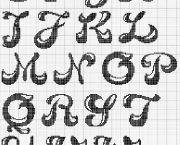 I J K L
M N O P
Q R S T